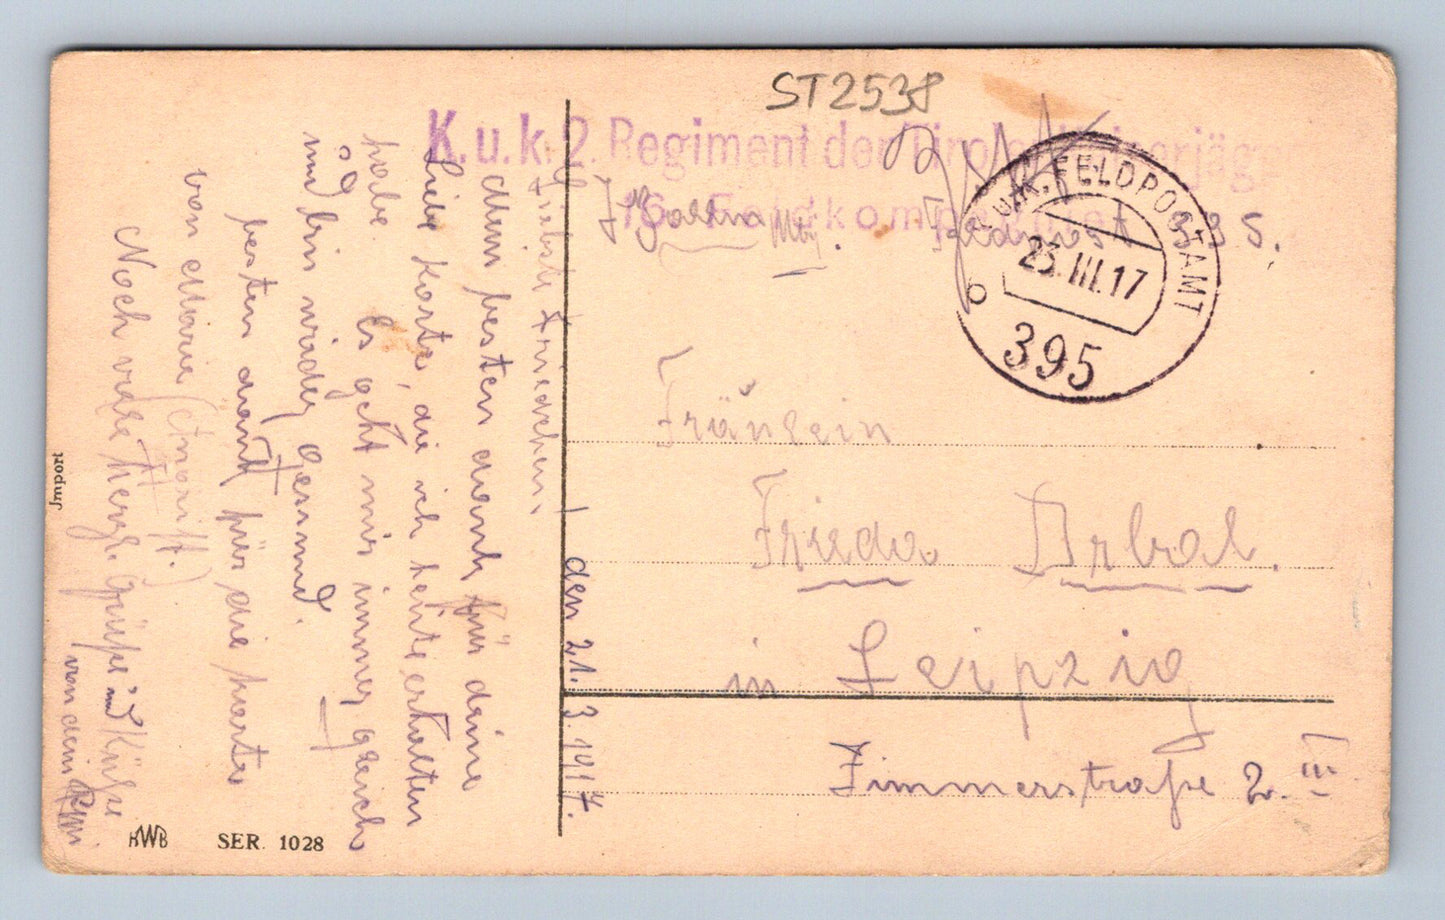 ST2538
K.u.k. 2. Regiment der Tiroler Kaiserjäger
16. Feldkompagnie
Feldpost 395.
K.u.K. FELDPOSTAMT
23.III.17
b
395
Fräulein
Frieda Arbal.
in Leipzig
Zimmerstraße 2. III
den 21. 3. 1917.
Liebste Friedchen!
dein besten dank für deine
Liebe Karte, die ich heute erhalten
habe. Es geht mir immer gleich
und bin wieder gesund.
besten dank für die Karte
von Marie
Noch viele herzl. Grüße und Küsse
von dein
Import
RWB SER. 1028